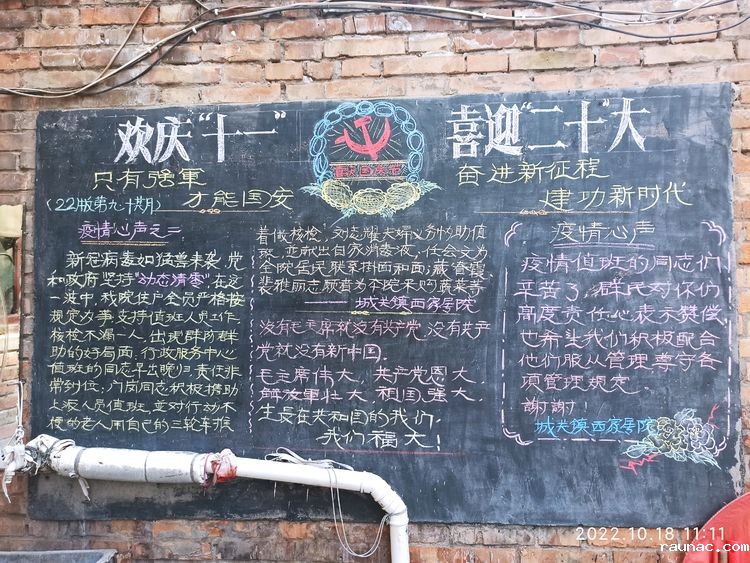 欢庆"十一"
喜迎"二十"大
只有强軍
才能国安
(22版第九十期)
奋进新征程
建功新时代
疫情心声之二
新冠病毒如猛兽来袭,党
和政府坚持"动态清零",在这
一波中,我院住户全员严格按
规定办事,支持值班人员工作,
核检不漏一人,出现群防群
助的好局面.行政服务中心
值班的同志早出晚归,责任非
常到位;门岗同志积极携助
上派人员值班,並对行动不
便的老人用自己的三轮车推
着做核检.刘志耀夫婦义务协助值
班,並献出自家消毒液,任会文为
全院居民联系掛面和面;戴管霞
裴雅丽志願者为本院采购蔬菜等
城关镇西家居院
没有毛席就没有共产党,没有共产
党就没有新中国.
毛主席伟大,共产党恩大,
解放軍壮大,祖国强大,
生長在共和国的我们,
我们福大!
疫情心声
疫情值班的同志们
辛苦了,群民对你们
高度责任心表示赞偿,
也希头我们积极配合
他们服从管理尊守各
项管理规定.
謝謝!
城关镇西家居院
2022.10.18 11:11
raunac.com